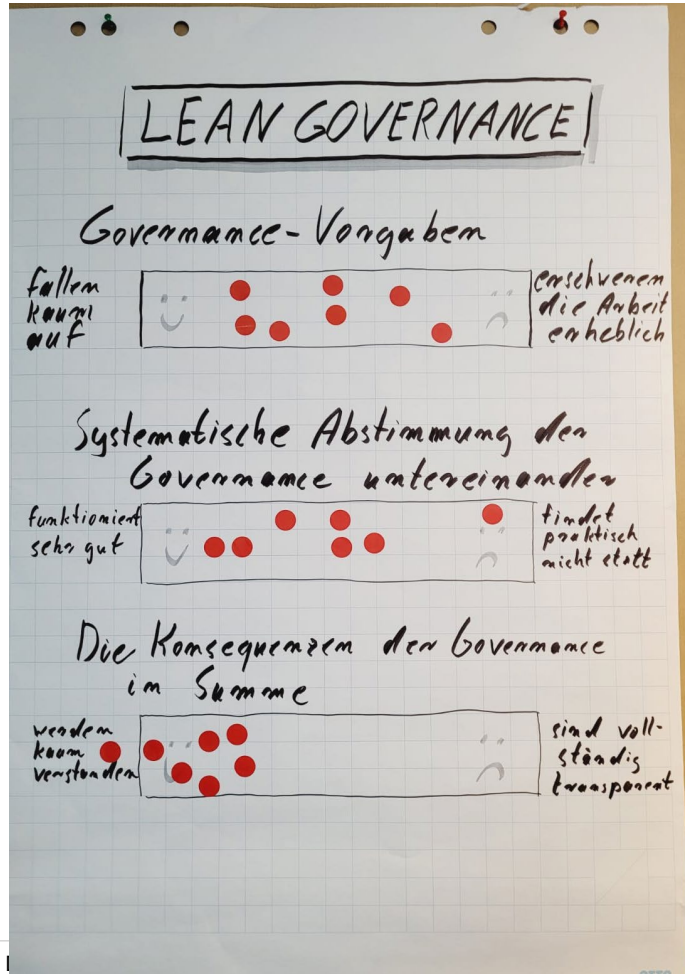 LEAN GOVERNANCE
Governance-Vorgaben
fallen
kaum
auf
erschweren
die Arbeit
erheblich
Systematische Abstimmung der
Governance untereinander
funktioniert
sehr gut
findet
praktisch
nicht statt
Die Konsequenzen der Governance
in Summe
werden
kaum
verstanden
sind voll-
ständig
transparent